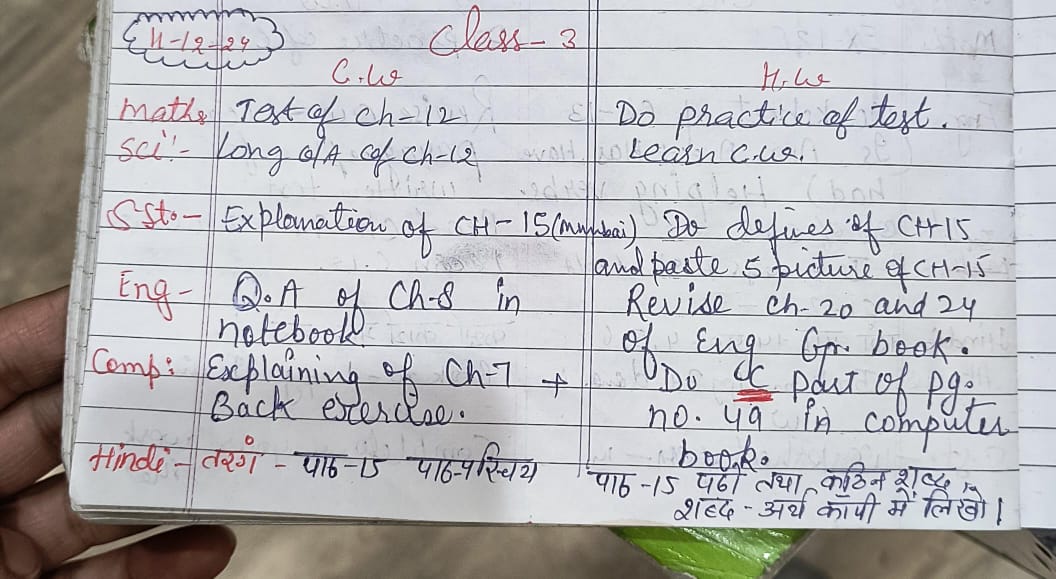 11-12-24
Class-3
C.W H.W
Maths Test of Ch-12 Do practice of test.
Sci:- Long Q/A of Ch-12 Learn C.W.
S.St.- Explanation of CH-15 (Mumbai) Do defines of CH-15
and paste 5 picture of CH-15
Eng- Q.A of Ch-8 in Revise Ch-20 and 24
notebook of Eng Gr. book.
Comp: Explaining of Ch-7 + Do C part of pg.
Back exercise. no. 49 in computer
book.
Hindi- तरंग - पाठ-15 पाठ-परिचय पाठ-15 पढ़ो तथा कठिन शब्द,
शब्द-अर्थ कॉपी में लिखो।